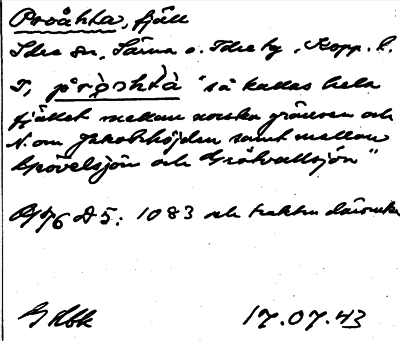 Proåhta, fjäll
Idre sn, Särna o. Idre tg, Kopp. l.
"så kallas hela
fjället mellan norska gränsen och
N. om Jakobshöjden samt mellan
Spövelsjön och Grövelsjön"
D5: 1083 och trakten däromkr
17.07.43